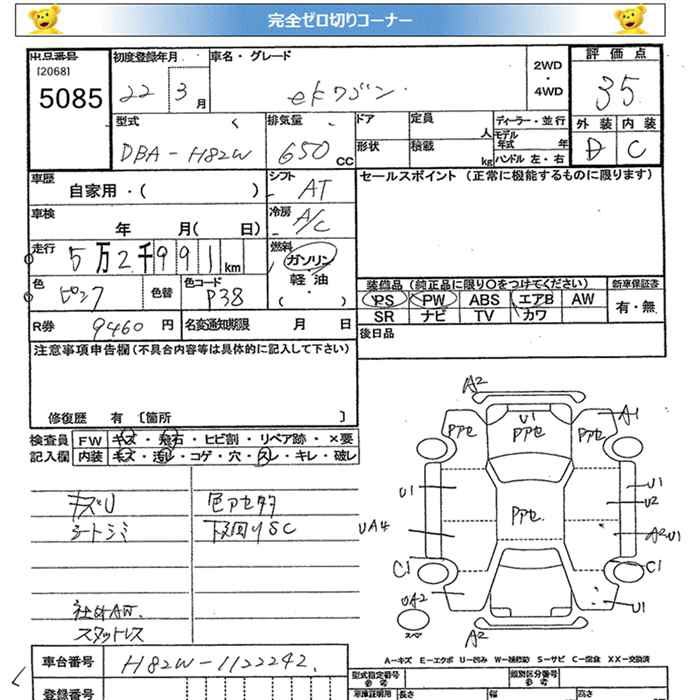 完全ゼロ切りコーナー
出品番号 初度登録年月 車名・グレード 2WD・4WD 評価点
[2068]
5085 22 3月 eKワゴン 35
型式 排気量 ドア 定員 人 ディーラー・並行 外装 内装
DBA-H82W 650CC 形状 積載 kg モデル年式 年 ハンドル 左・右 D C
車歴 自家用・( ) シフト AT セールスポイント(正常に機能するものに限ります)
車検 年 月( 日) 冷房 A/C
走行 5万2千991km 燃料 ガソリン
軽油
( ・ )
色 ピンク 色替 色コード P38
装備品(純正品に限り〇をつけてください) 新車保証書
PS PW ABS エアB AW 有・無
SR ナビ TV カワ
R券 9460円 名変通知期限 月 日 後日品
注意事項申告欄(不具合内容等は具体的に記入して下さい)
修復歴 有 〔箇所 〕
検査員 FW キズ・飛石・ヒビ割・リペア跡・×要
記入欄 内装 キズ・汚レ・コゲ・穴・スレ・キレ・破レ
キズU 色アセ多
シートシミ 下回りSC
社外AW.
スタッドレス
A2
A1
U1
Pアセ Pアセ Pアセ
U1 U1
U2
Pアセ.
UA4 A2 U1
C1 C1
UA2 U1
スペア A2
A-キズ E-エクボ U-凹み W-補修跡 S-サビ C-腐食 XX-交換済
車台番号 H82W-1122242. 型式指定番号 参考 類別区分番号 参考
登録番号 車庫証明用 長さ 幅 高さ